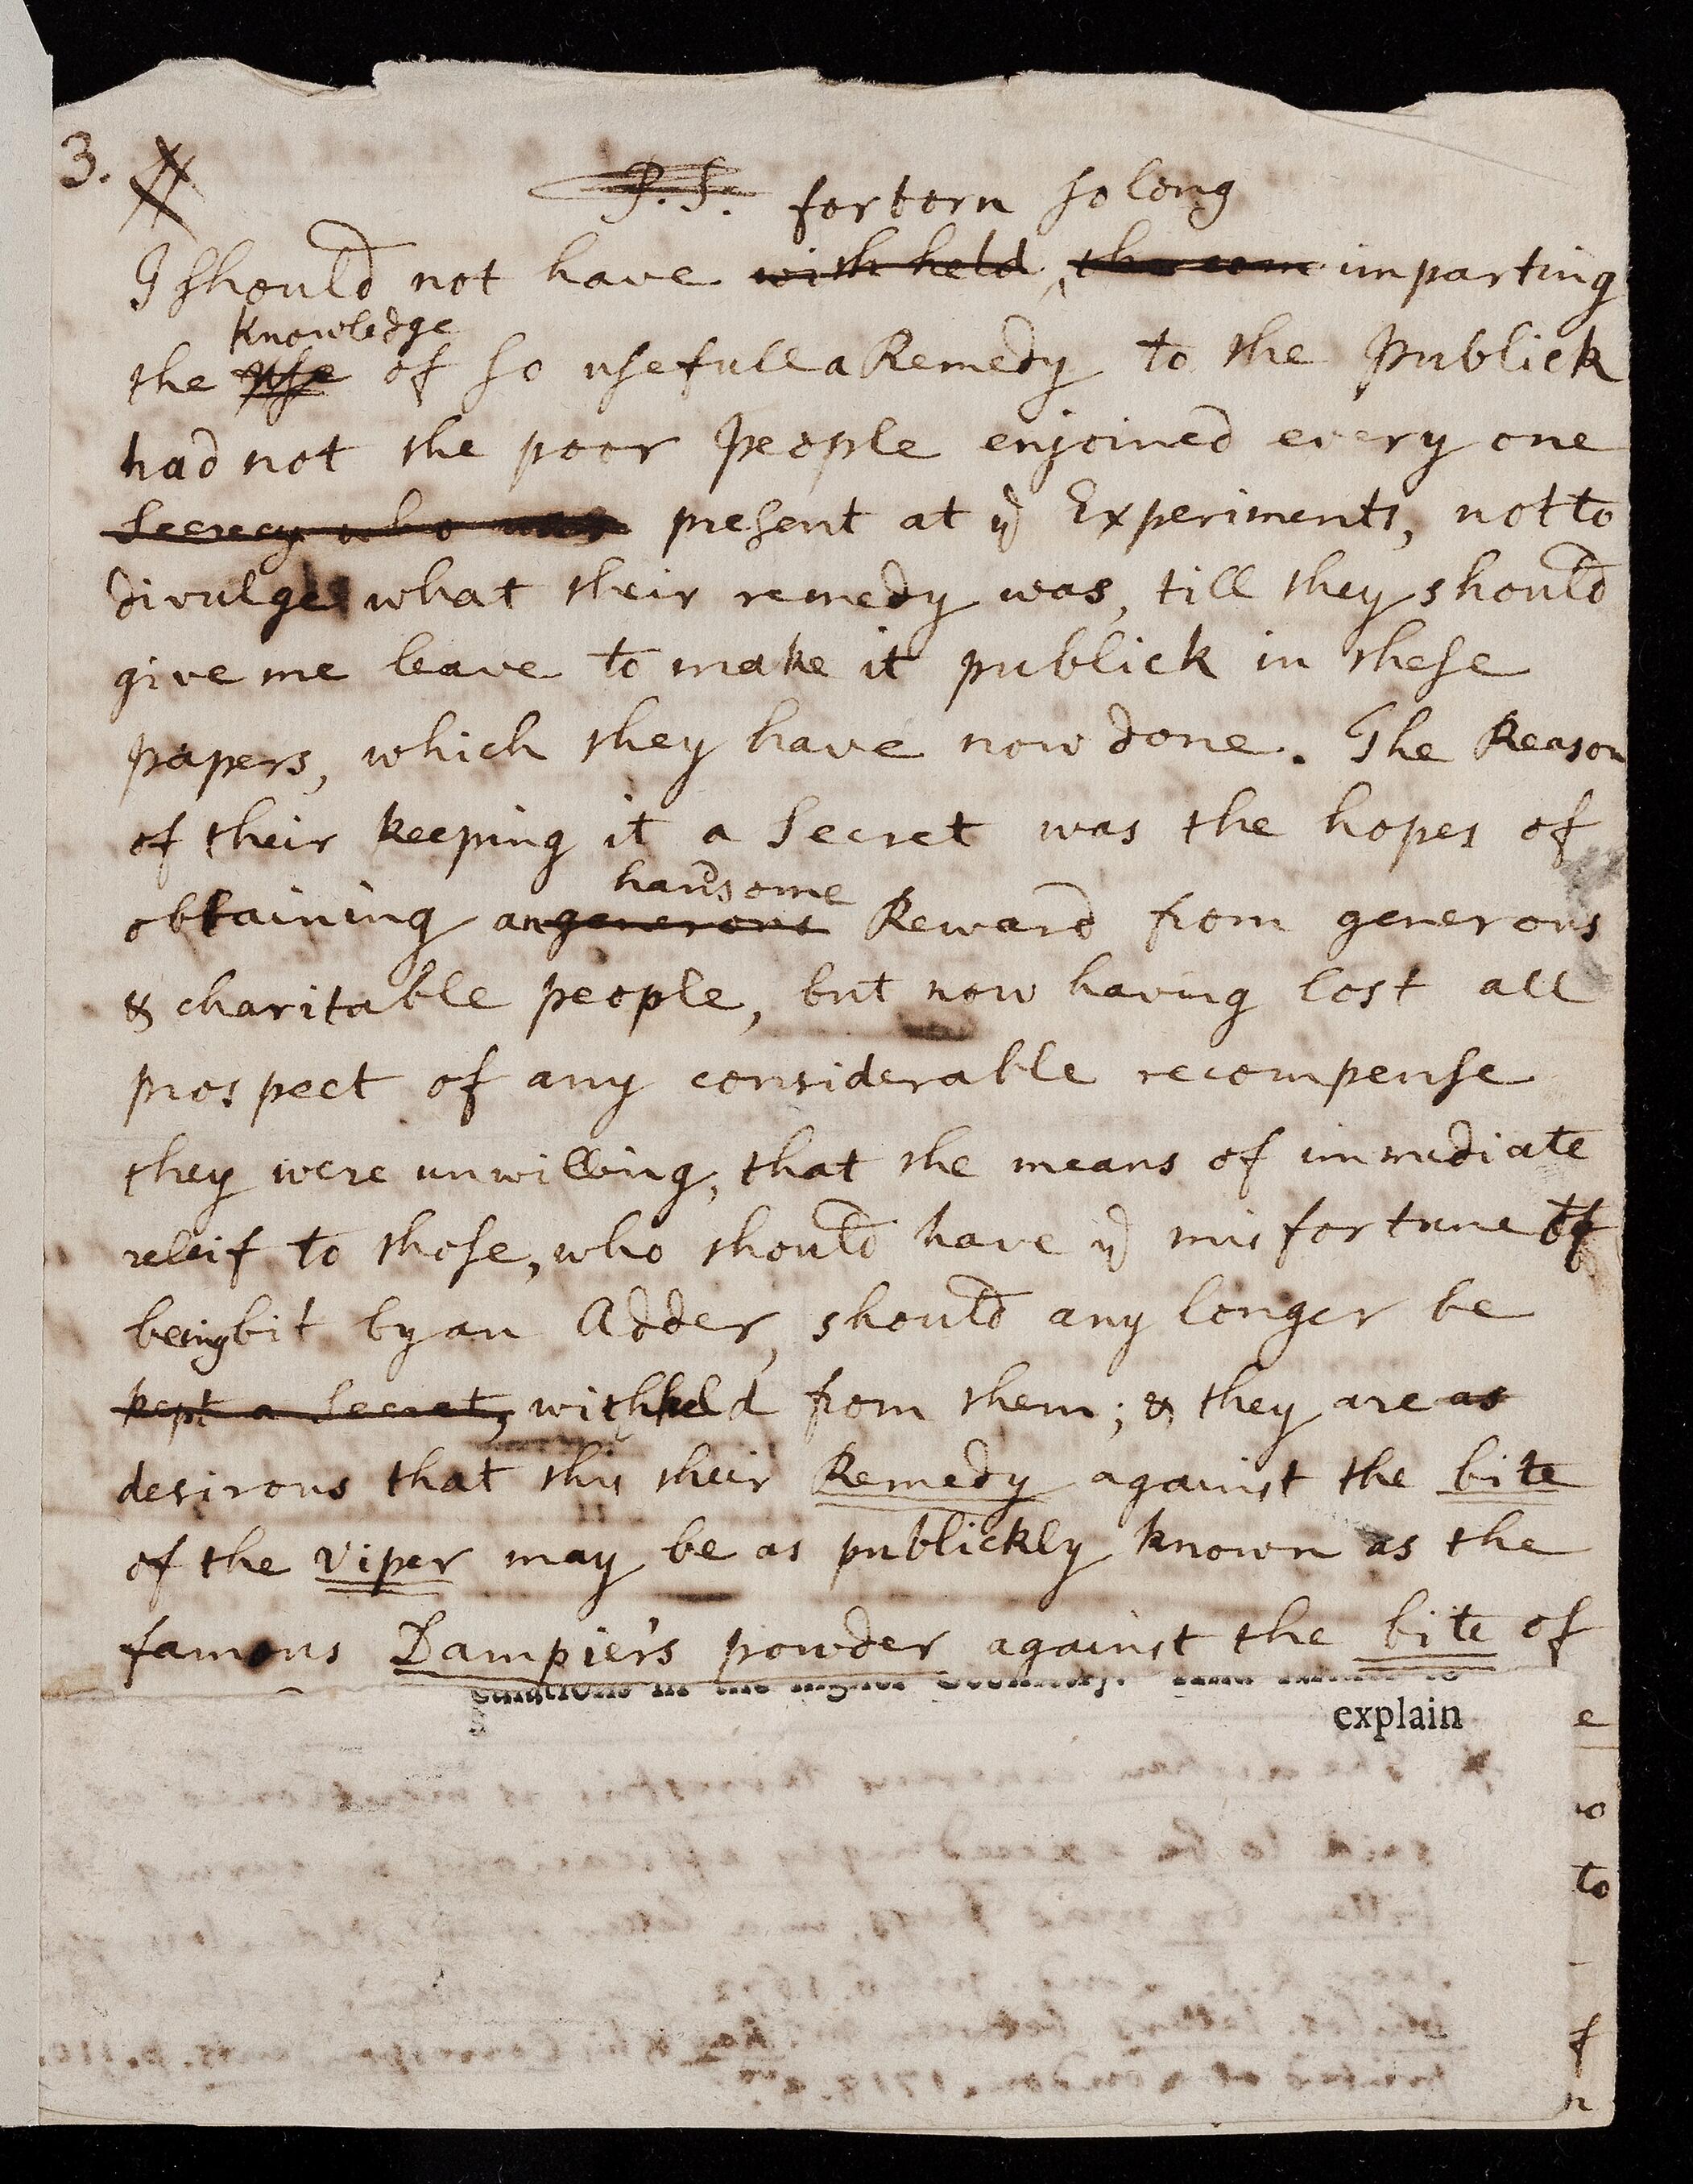 3.
P.S. forborn so long
I should not have with held, the com imparting
knowledge
the use of so usefull a Remedy to the Publick
had not the poor People enjoined every one
Secrecy who was present at yͤ Experiments, not to
divulge what their remedy was, till they should
give me leave to make it publick in these
papers, which they have now done. The Reason
of their keeping it a Secret was the hopes of
handsome
obtaining a generous Reward from generous
& charitable people, but now having lost all
prospect of any considerable recompense
they were unwilling, that the means of immediate
releif to those, who should have yͤ misfortune of
being bit by an Adder, should any longer be
kept a Secret, withheld from them; & they are as
desirous that this their Remedy against the bite
of the Viper may be as publickly known as the
famous Dampier's powder against the bite of
explain
e
to
f
n